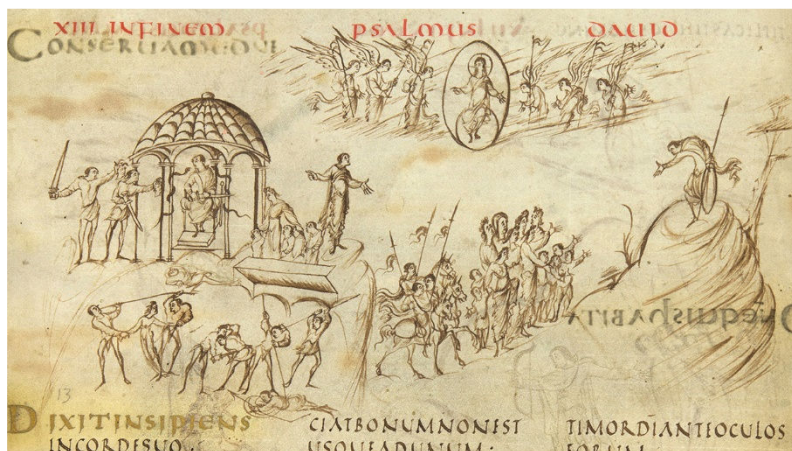 XIII INFINEM PSALMUS DAUID
CONSERUAMEDNE
DIXITINSIPIENS
INCORDESUO.
CIATBONUMNONEST
USQUEADUNUM:
TIMORDIANTEOCULOS
EORUM